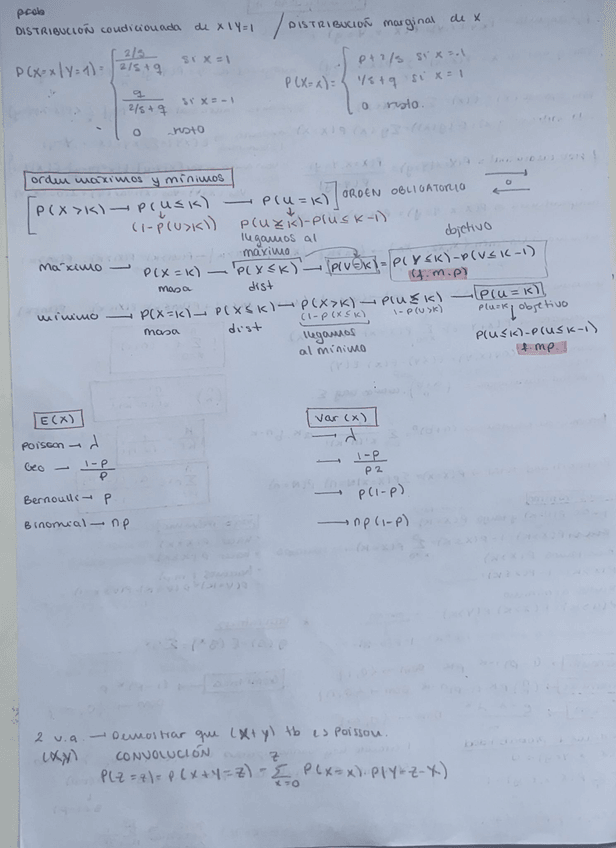 proba
DISTRIBUCIÓN condicionada de x|Y=1 / DISTRIBUCIÓN marginal de x
P(X=x|Y=1)= { 2/5 / 2/5+q si x=1
q / 2/5+q si x=-1
0 resto
P(X=x)= { p+2/5 si x=-1
1/5+q si x=1
0 resto
orden máximos y mínimos
[P(X>K) → P(U≤K) → P(U=K)] ORDEN OBLIGATORIO
(1-P(U>K)) P(U≤K)-P(U≤K-1)
llegamos al
máximo
objetivo
máximo → P(X=K) → P(X≤K) → P(V≤K) = P(V≤K)-P(V≤K-1)
masa dist (f.m.p)
mínimo → P(X=K) → P(X≤K) → P(X>K) → P(U≤K) → P(U=K)
masa dist (1-P(X≤K)) 1-P(U>K) P(U=K) objetivo
llegamos
al mínimo
P(U≤K)-P(U≤K-1)
f.mp.
E(X) Var(X)
Poisson → λ → λ
Geo → 1-p / p → 1-p / p2
Bernoulli → p → p(1-p)
Binomial → np → np(1-p)
2 v.a → Demostrar que (X+Y) tb es Poisson.
(X,Y) CONVOLUCIÓN
P(Z=z)= P(X+Y=z) = Σ z x=0 P(X=x)·P(Y=z-x)